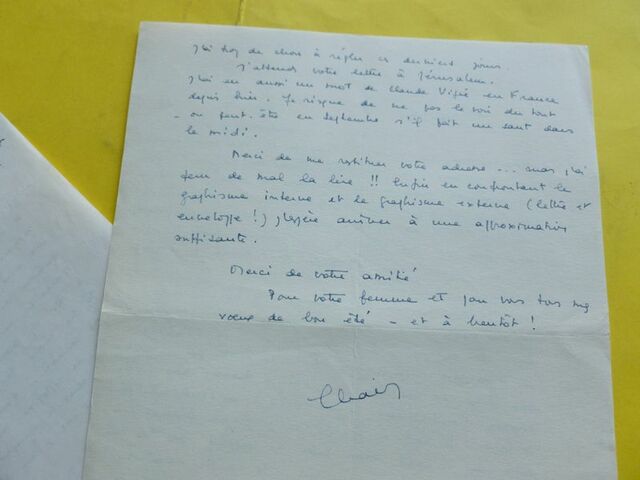 J'ai trop de choses à régler ces derniers jours
J'attends votre lettre à Jérusalem.
J'ai eu aussi un mot de Claude Vigée en France
depuis hier. Je risque de ne pas le voir du tout
- ou peut-être en septembre s'il fait un saut dans
le midi.
Merci de me restituer votre adresse ... mais j'ai
peur de mal la lire !! Enfin en confrontant le
graphisme interne et le graphisme externe (lettre et
enveloppe !) j'espère arriver à une approximation
suffisante.
Merci de votre amitié
Pour votre femme et pour vous tous mes
vœux de bon été - et à bientôt !